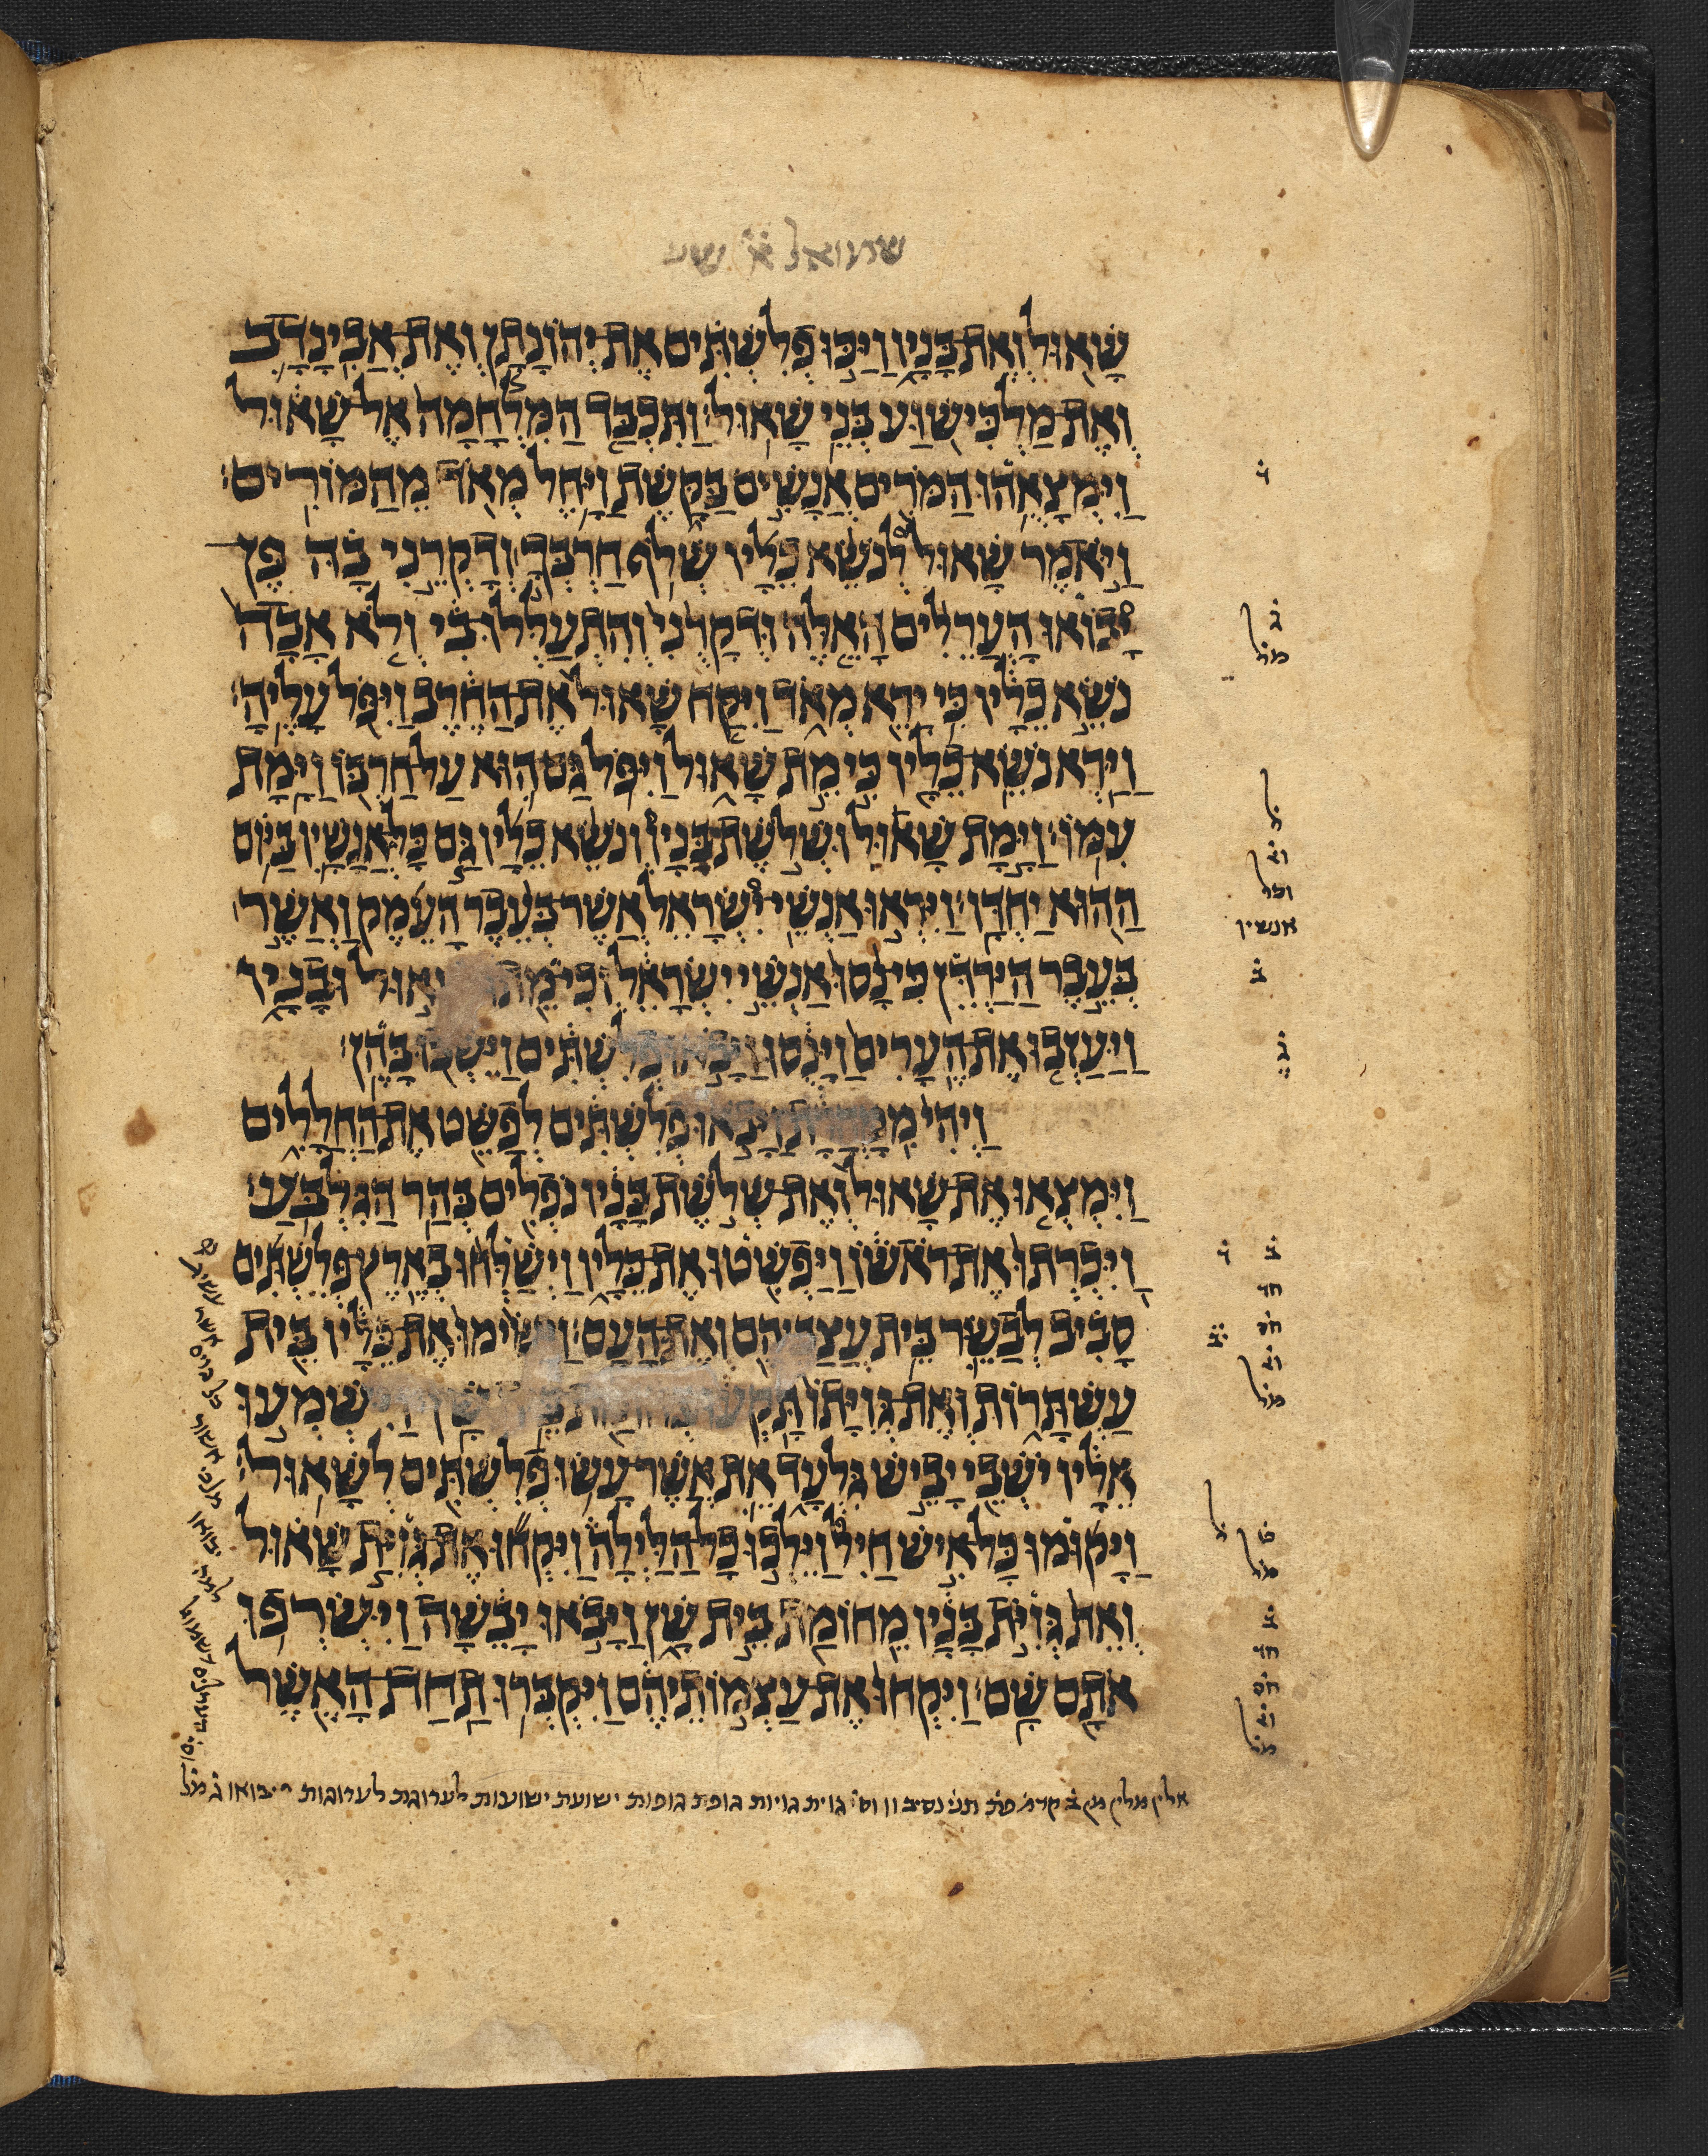 שמואל א׳
שָׁאוּל וְאֶת בָּנָיו וַיַּכּוּ פְלִשְׁתִּים אֶת יְהוֹנָתָן וְאֶת אֲבִינָדָב
וְאֶת מַלְכִּישׁוּעַ בְּנֵי שָׁאוּל׃ וַתִּכְבַּד הַמִּלְחָמָה אֶל שָׁאוּל
וַיִּמְצָאֻהוּ הַמֹּרִים אֲנָשִׁים בַּקָּשֶׁת וַיָּחֶל מְאֹד מֵהַמּוֹרִים׃
וַיֹּאמֶר שָׁאוּל לְנֹשֵׂא כֵלָיו שְׁלֹף חַרְבְּךָ וְדָקְרֵנִי בָהּ פֶּן
יָבוֹאוּ הָעֲרֵלִים הָאֵלֶּה וּדְקָרֻנִי וְהִתְעַלְּלוּ בִי וְלֹא אָבָה
נֹשֵׂא כֵלָיו כִּי יָרֵא מְאֹד וַיִּקַּח שָׁאוּל אֶת הַחֶרֶב וַיִּפֹּל עָלֶיהָ׃
וַיַּרְא נֹשֵׂא כֵלָיו כִּי מֵת שָׁאוּל וַיִּפֹּל גַּם הוּא עַל חַרְבּוֹ וַיָּמָת
עִמּוֹ׃ וַיָּמָת שָׁאוּל וּשְׁלֹשֶׁת בָּנָיו וְנֹשֵׂא כֵלָיו גַּם כָּל אֲנָשָׁיו בַּיּוֹם
הַהוּא יַחְדָּו׃ וַיִּרְאוּ אַנְשֵׁי יִשְׂרָאֵל אֲשֶׁר בְּעֵבֶר הָעֵמֶק וַאֲשֶׁר
בְּעֵבֶר הַיַּרְדֵּן כִּי נָסוּ אַנְשֵׁי יִשְׂרָאֵל וְכִי מֵתוּ שָׁאוּל וּבָנָיו
וַיַּעַזְבוּ אֶת הֶעָרִים וַיָּנֻסוּ וַיָּבֹאוּ פְלִשְׁתִּים וַיֵּשְׁבוּ בָּהֶן׃
וַיְהִי מִמָּחֳרָת וַיָּבֹאוּ פְלִשְׁתִּים לְפַשֵּׁט אֶת הַחֲלָלִים
וַיִּמְצְאוּ אֶת שָׁאוּל וְאֶת שְׁלֹשֶׁת בָּנָיו נֹפְלִים בְּהַר הַגִּלְבֹּעַ׃
וַיִּכְרְתוּ אֶת רֹאשׁוֹ וַיַּפְשִׁטוּ אֶת כֵּלָיו וַיְשַׁלְּחוּ בְאֶרֶץ פְּלִשְׁתִּים
סָבִיב לְבַשֵּׂר בֵּית עֲצַבֵּיהֶם וְאֶת הָעָם׃ וַיָּשִׂימוּ אֶת כֵּלָיו בֵּית
עַשְׁתָּרוֹת וְאֶת גְּוִיָּתוֹ תָּקְעוּ בְּחוֹמַת בֵּית שָׁן׃ וַיִּשְׁמְעוּ
אֵלָיו יֹשְׁבֵי יָבֵישׁ גִּלְעָד אֵת אֲשֶׁר עָשׂוּ פְלִשְׁתִּים לְשָׁאוּל׃
וַיָּקוּמוּ כָּל אִישׁ חַיִל וַיֵּלְכוּ כָל הַלַּיְלָה וַיִּקְחוּ אֶת גְּוִיַּת שָׁאוּל
וְאֵת גְּוִיֹּת בָּנָיו מֵחוֹמַת בֵּית שָׁן וַיָּבֹאוּ יָבֵשָׁה וַיִּשְׂרְפוּ
אֹתָם שָׁם׃ וַיִּקְחוּ אֶת עַצְמֹתֵיהֶם וַיִּקְבְּרוּ תַחַת הָאֶשֶׁל
ג֗
מל
ל
וכל
אנשין
ב֗
ג֗
ב֗
חד
חס
מל
מל
ב֗
חד
חס
מל
אלין מלין מן ב֗ קדמ֗ פת֗ תני֗ נסיב וו וס֗ גוית גויות גופת גופות ישועת ישועות לערוגת לערוגות יבואו ג֗ מל֗